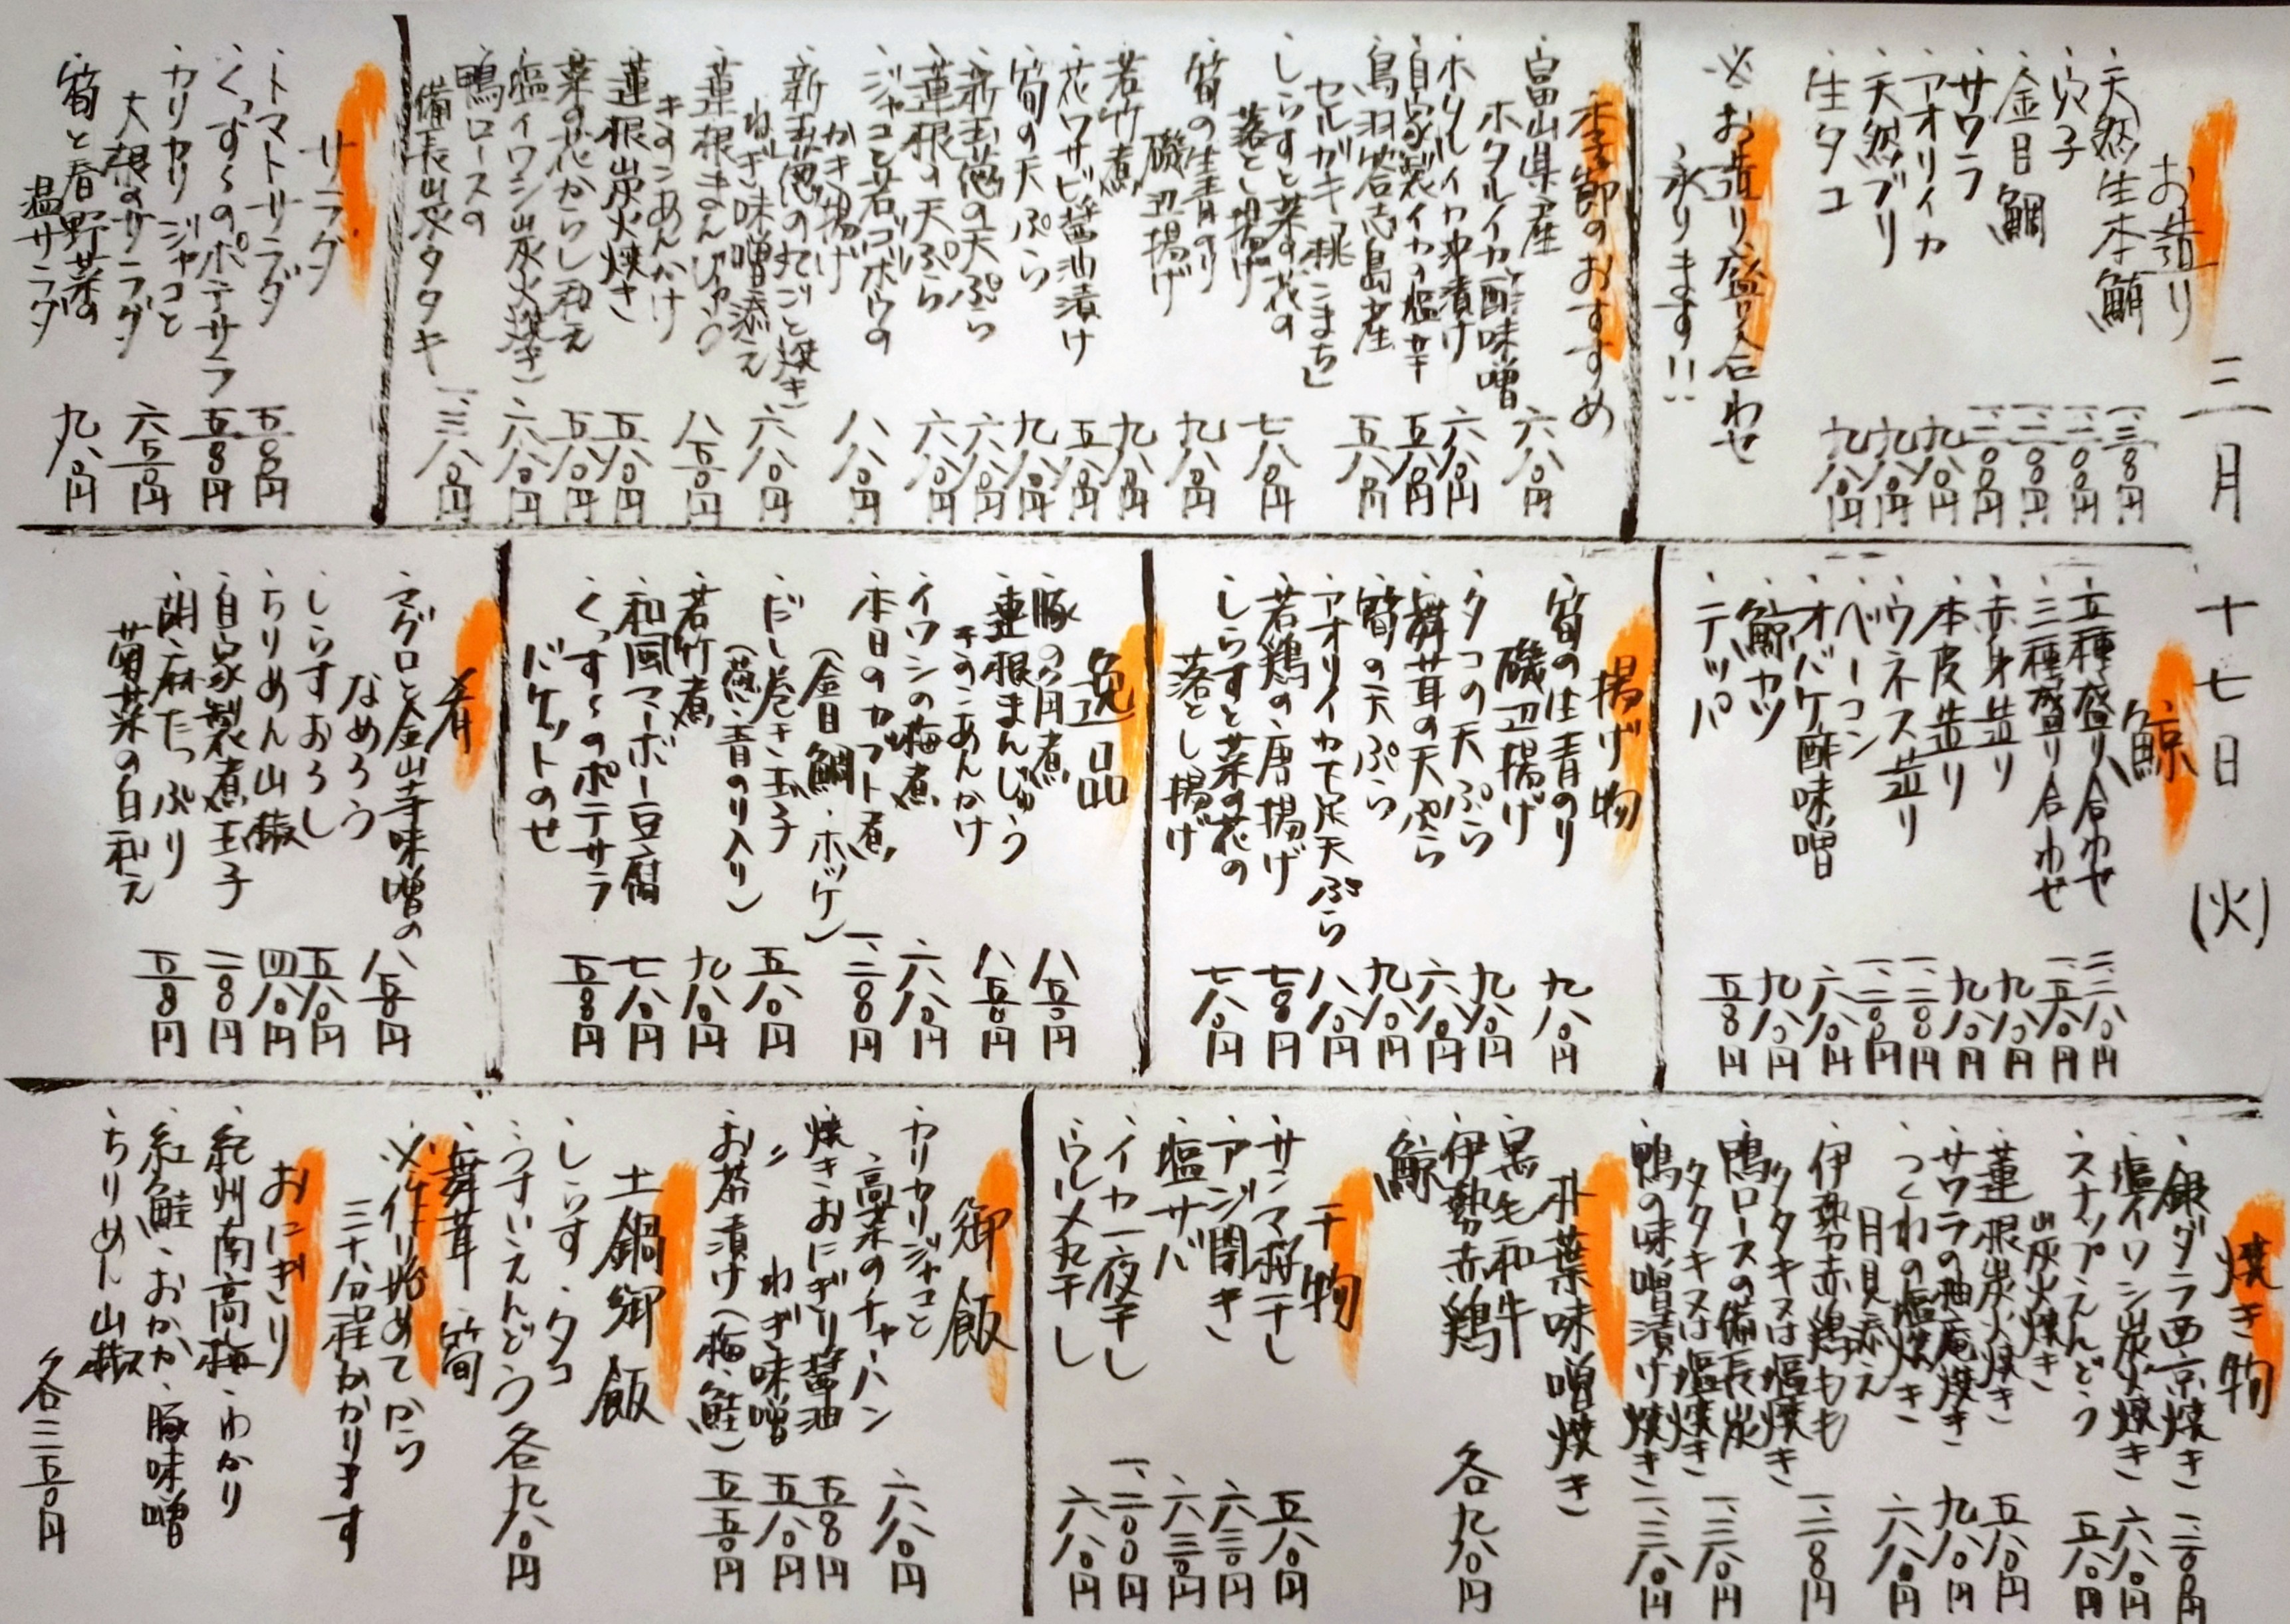 三月
十七日
(火)
お造り
・天然生本鮪 一、三〇〇円
・穴子
・金目鯛
・サワラ
・アオリイカ 九八〇円
・天然ブリ 九八〇円
・生タコ 九八〇円
※お造り盛り合わせ
承ります!!
季節のおすすめ
・富山県産
ホタルイカ酢味噌 六八〇円
・ホタルイカ沖漬け 六八〇円
・自家製イカの塩辛 五八〇円
・鳥羽答志島産
セルガキ「桃こまち」 五八〇円
・しらすと菜の花の
落とし揚げ 七八〇円
・筍の生青のり
磯辺揚げ 九八〇円
・若竹煮 九八〇円
・花ワサビ醤油漬け 五八〇円
・筍の天ぷら 九八〇円
・新玉葱の天ぷら 六八〇円
・蓮根の天ぷら 六八〇円
・ジャコと若ゴボウの
かき揚げ 八八〇円
・新玉葱の丸ごと焼き
ねぎ味噌添え 六八〇円
・蓮根まんじゅう
きのこあんかけ 八五〇円
・蓮根炭火焼き 五八〇円
・菜の花からし和え 五八〇円
・塩イワシ炭火焼き 六八〇円
・鴨ロースの
備長炭タタキ 一、三八〇円
サラダ
・トマトサラダ 五〇〇円
・くっすぅのポテサラ 五〇〇円
・カリカリジャコと
大根のサラダ 六五〇円
・筍と春野菜の
温サラダ 九八〇円
鯨
・五種盛り合わせ
・三種盛り合わせ
・赤身造り 九八〇円
・本皮造り 九八〇円
・ウネス造り
・ベーコン
・オバケ酢味噌 六八〇円
・鯨カツ 九八〇円
・テッパ 五〇〇円
揚げ物
・筍の生青のり
磯辺揚げ 九八〇円
・タコの天ぷら 九八〇円
・舞茸の天ぷら 六八〇円
・筍の天ぷら 九八〇円
・アオリイカ下足天ぷら 八八〇円
・若鶏の唐揚げ 七〇〇円
・しらすと菜の花の
落とし揚げ 七八〇円
逸品
・豚の角煮 八五〇円
・蓮根まんじゅう
きのこあんかけ 八五〇円
・イワシの梅煮 六八〇円
・本日のカブト煮
(金目鯛・ホッケ) 一、二〇〇円
・だし巻き玉子
(葱・青のり入り) 五八〇円
・若竹煮 九八〇円
・和風マーボー豆腐 七八〇円
・くっすぅのポテサラ
バケットのせ 五〇〇円
肴
・マグロと金山寺味噌の
なめろう 八五〇円
・しらすおろし 五八〇円
・ちりめん山椒 四八〇円
・自家製煮玉子 二〇〇円
・胡麻たっぷり
菊菜の白和え 五〇〇円
焼き物
・銀ダラ西京焼き 一、二〇〇円
・塩イワシ炭火焼き 六八〇円
・スナップえんどう
炭火焼き 五八〇円
・蓮根炭火焼き 五八〇円
・サワラの柚庵焼き 九八〇円
・つくねの塩焼き
月見添え 六八〇円
・伊勢赤鶏もも
タタキ又は塩焼き 一、二〇〇円
・鴨ロースの備長炭
タタキ又は塩焼き 一、三八〇円
・鴨の味噌漬け焼き 一、三八〇円
朴葉味噌焼き
・黒毛和牛
・伊勢赤鶏
・鯨
各九八〇円
干物
・サンマ丸干し 五八〇円
・アジ開き 六三〇円
・塩サバ 六三〇円
・イカ一夜干し 一、二〇〇円
・ウルメ丸干し 六八〇円
御飯
・カリカリジャコと
高菜のチャーハン 六八〇円
・焼きおにぎり醤油 五〇〇円
・〃 ねぎ味噌 五八〇円
・お茶漬け(梅・鮭) 五五〇円
土鍋御飯
・しらす・タコ
・うすいえんどう
・舞茸・筍
各九八〇円
※作り始めてから
三十分程かかります
おにぎり
・紀州南高梅・わかり
・紅鮭・おかか・豚味噌
・ちりめん山椒
各三五〇円